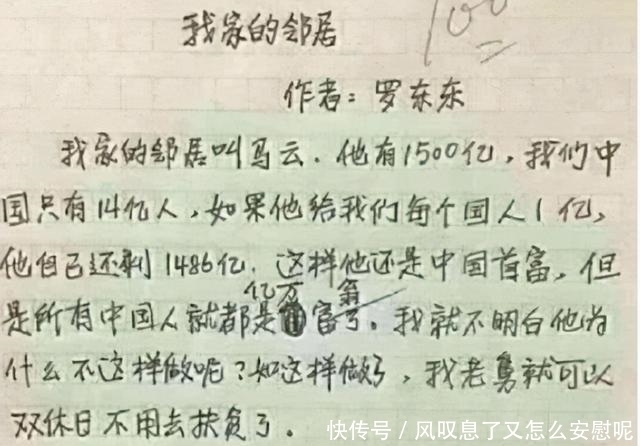 我家的邻居
100
作者：罗东东
我家的邻居叫马云．他有1500亿，我们中
国只有14亿人，如果他给我们每个国人1亿，
他自己还剩1486亿．这样他还是中国首富，但
亿万 翁
是所有中国人就都是富了。我就不明白他为
什么不这样做呢？如这样做了，我老舅就可以
双休日不用去扶贫了。
快传号／风叹息了又怎么安慰呢